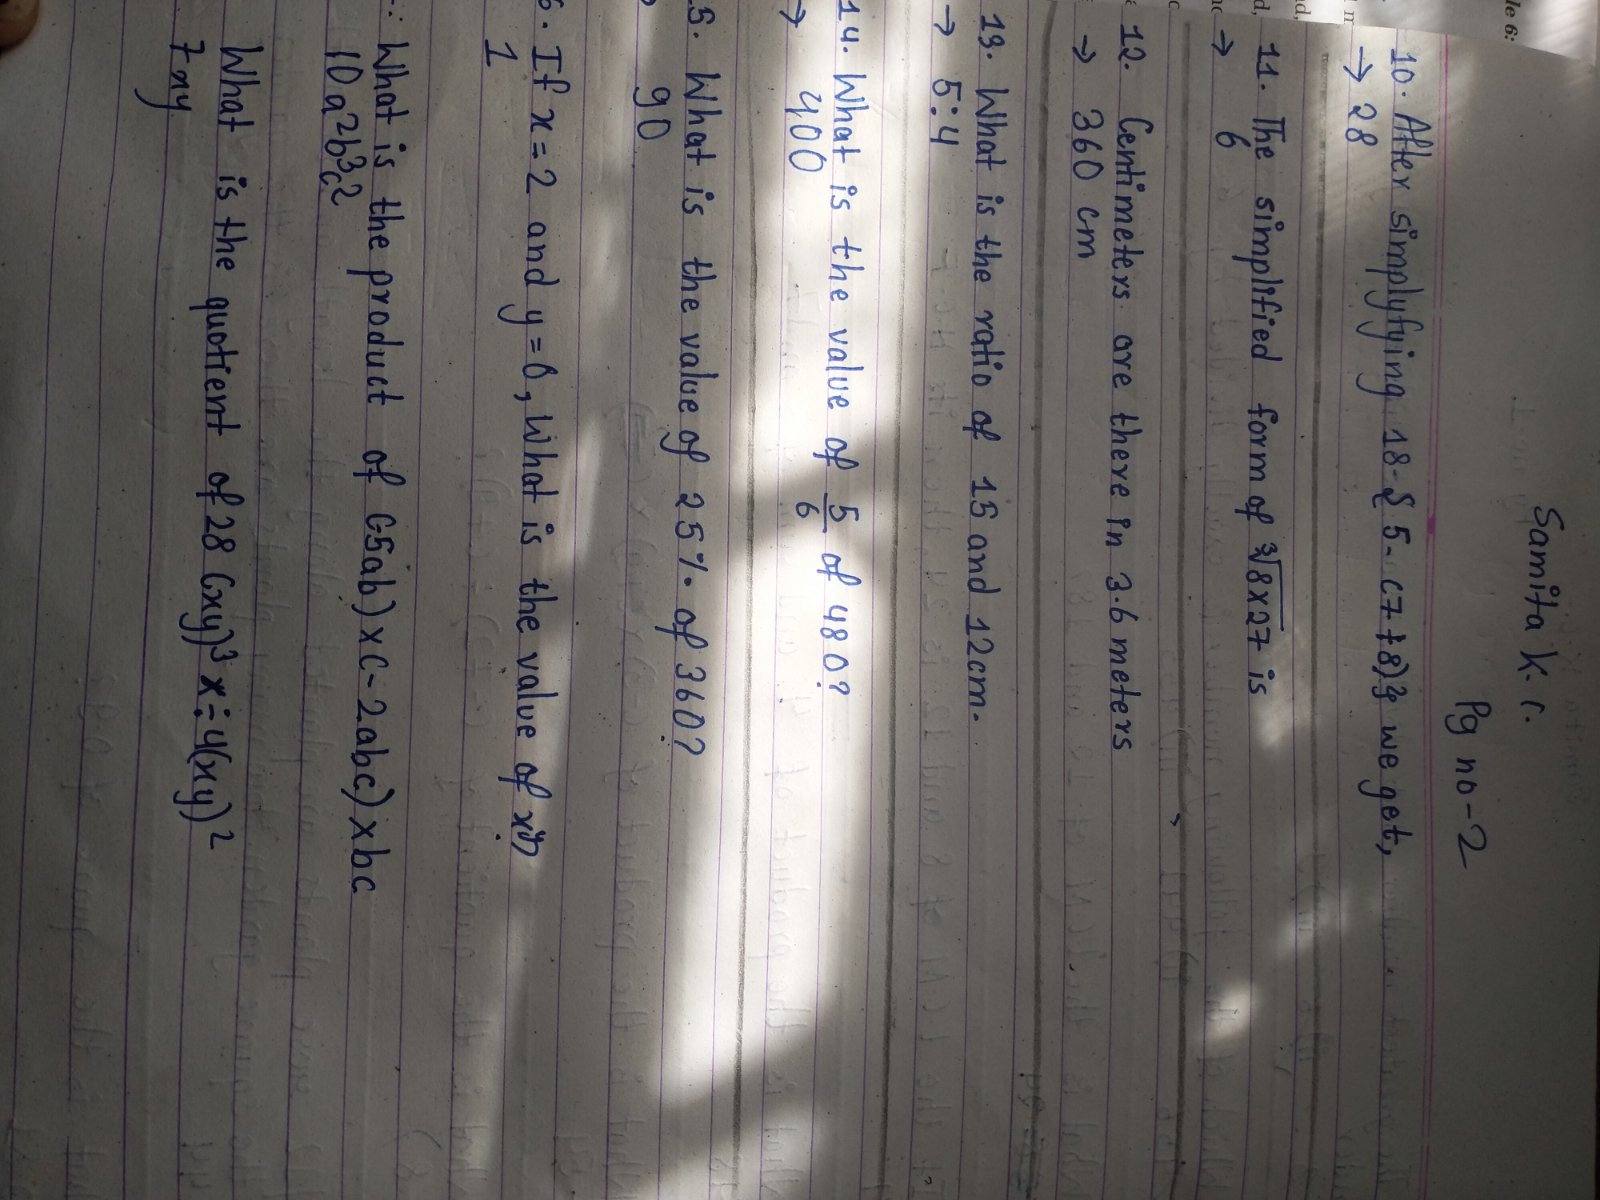 Samita K.C.
Pg no-2
10. After simplyfying 18-{ 5- (7+8)} we get,
→ 28
11. The simplified form of ∛8×27 is
→ 6
12. Centimeters are there in 3.6 meters
→ 360 cm
13. What is the ratio of 15 and 12cm.
→ 5:4
14. What is the value of 5/6 of 480?
→ 400
5. What is the value of 25% of 360?
90
6. If x=2 and y=0, What is the value of xy?
1
What is the product of (5ab)×(-2abc)×bc
10a2b3c2
What is the quotient of 28 (xy)³ x÷4(xy)²
7xy